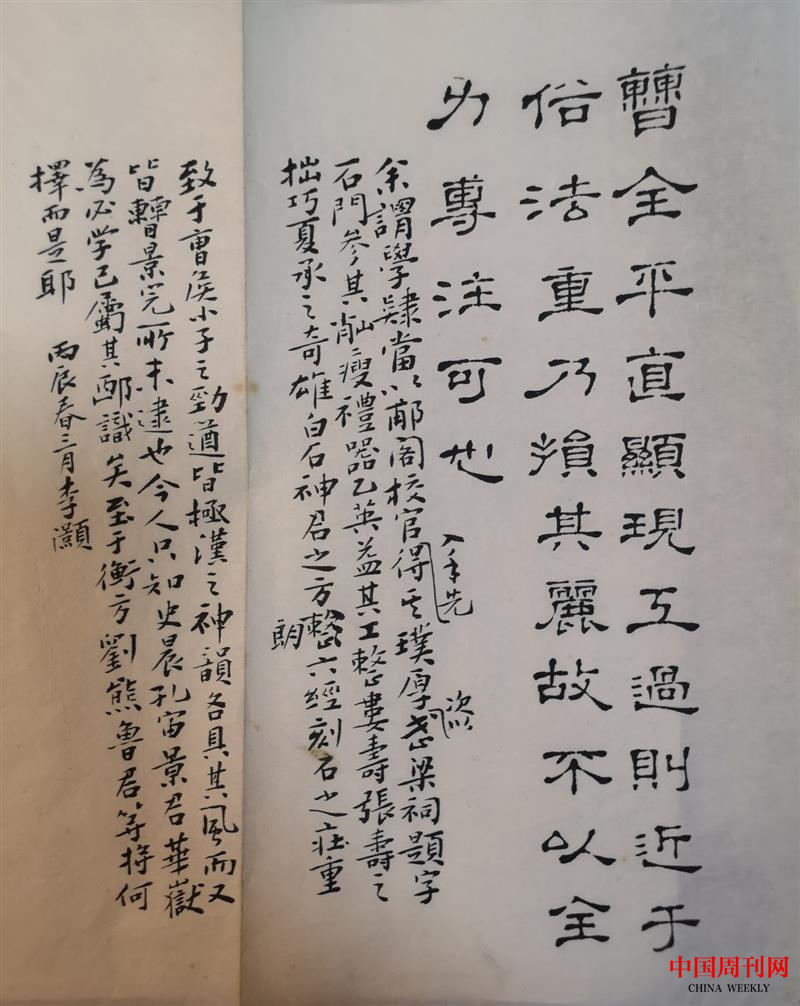 曹全平直顯現工過則近于
俗法重乃損其麗故不以全
力專注可也
余謂學隸當以郙閣校官得其璞厚梁祠題字
入手先
次以
石門參其峭瘦禮器乙英益其工整婁壽張壽之
拙巧夏承之奇雄白石神君之方整六經刻石之莊重
朗
致于曹侯小子之勁遒皆極漢之神韻各具其風而又
皆曹景完所未逮也今人只知史晨孔宙景君華嶽
為必学已屬其鄙識矣至于衡方劉熊魯君等將何
擇而是耶 丙辰春三月李灝
中国周刊网
CHINA WEEKLY